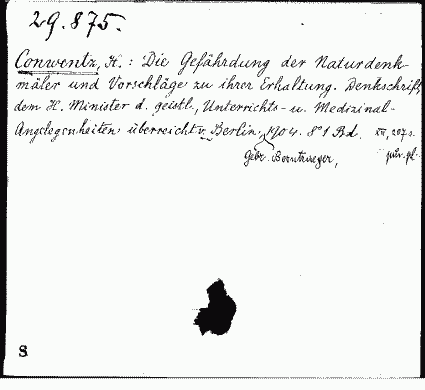 29.875.
Conwentz, H.: Die Gefährdung der Naturdenk-
mäler und Vorschläge zu ihrer Erhaltung. Denkschrift,
dem H. Minister d. geistl., Unterrichts- u. Medizinal-
Angelegenheiten überreicht v. Berlin, 1904. 8° 1 Bd. XII, 207 s.
Gebr. Borntraeger,
8